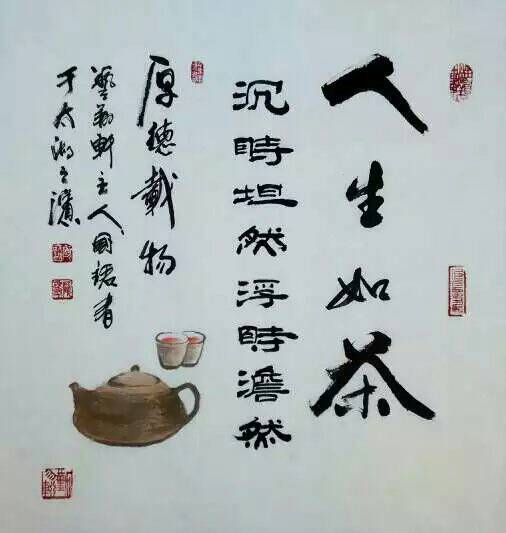 人生如茶
沉時坦然浮時澹然
厚德載物
主人國
于太湖之濱